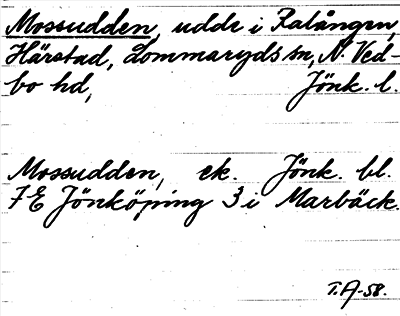 Mossudden, udde i Ralången,
Härstad, Lommaryds sn, N. Ved-
bo hd, Jönk. l.
Mossudden, ek. Jönk. bl.
7E Jönköping 3 i Marbäck.
T.A-58.